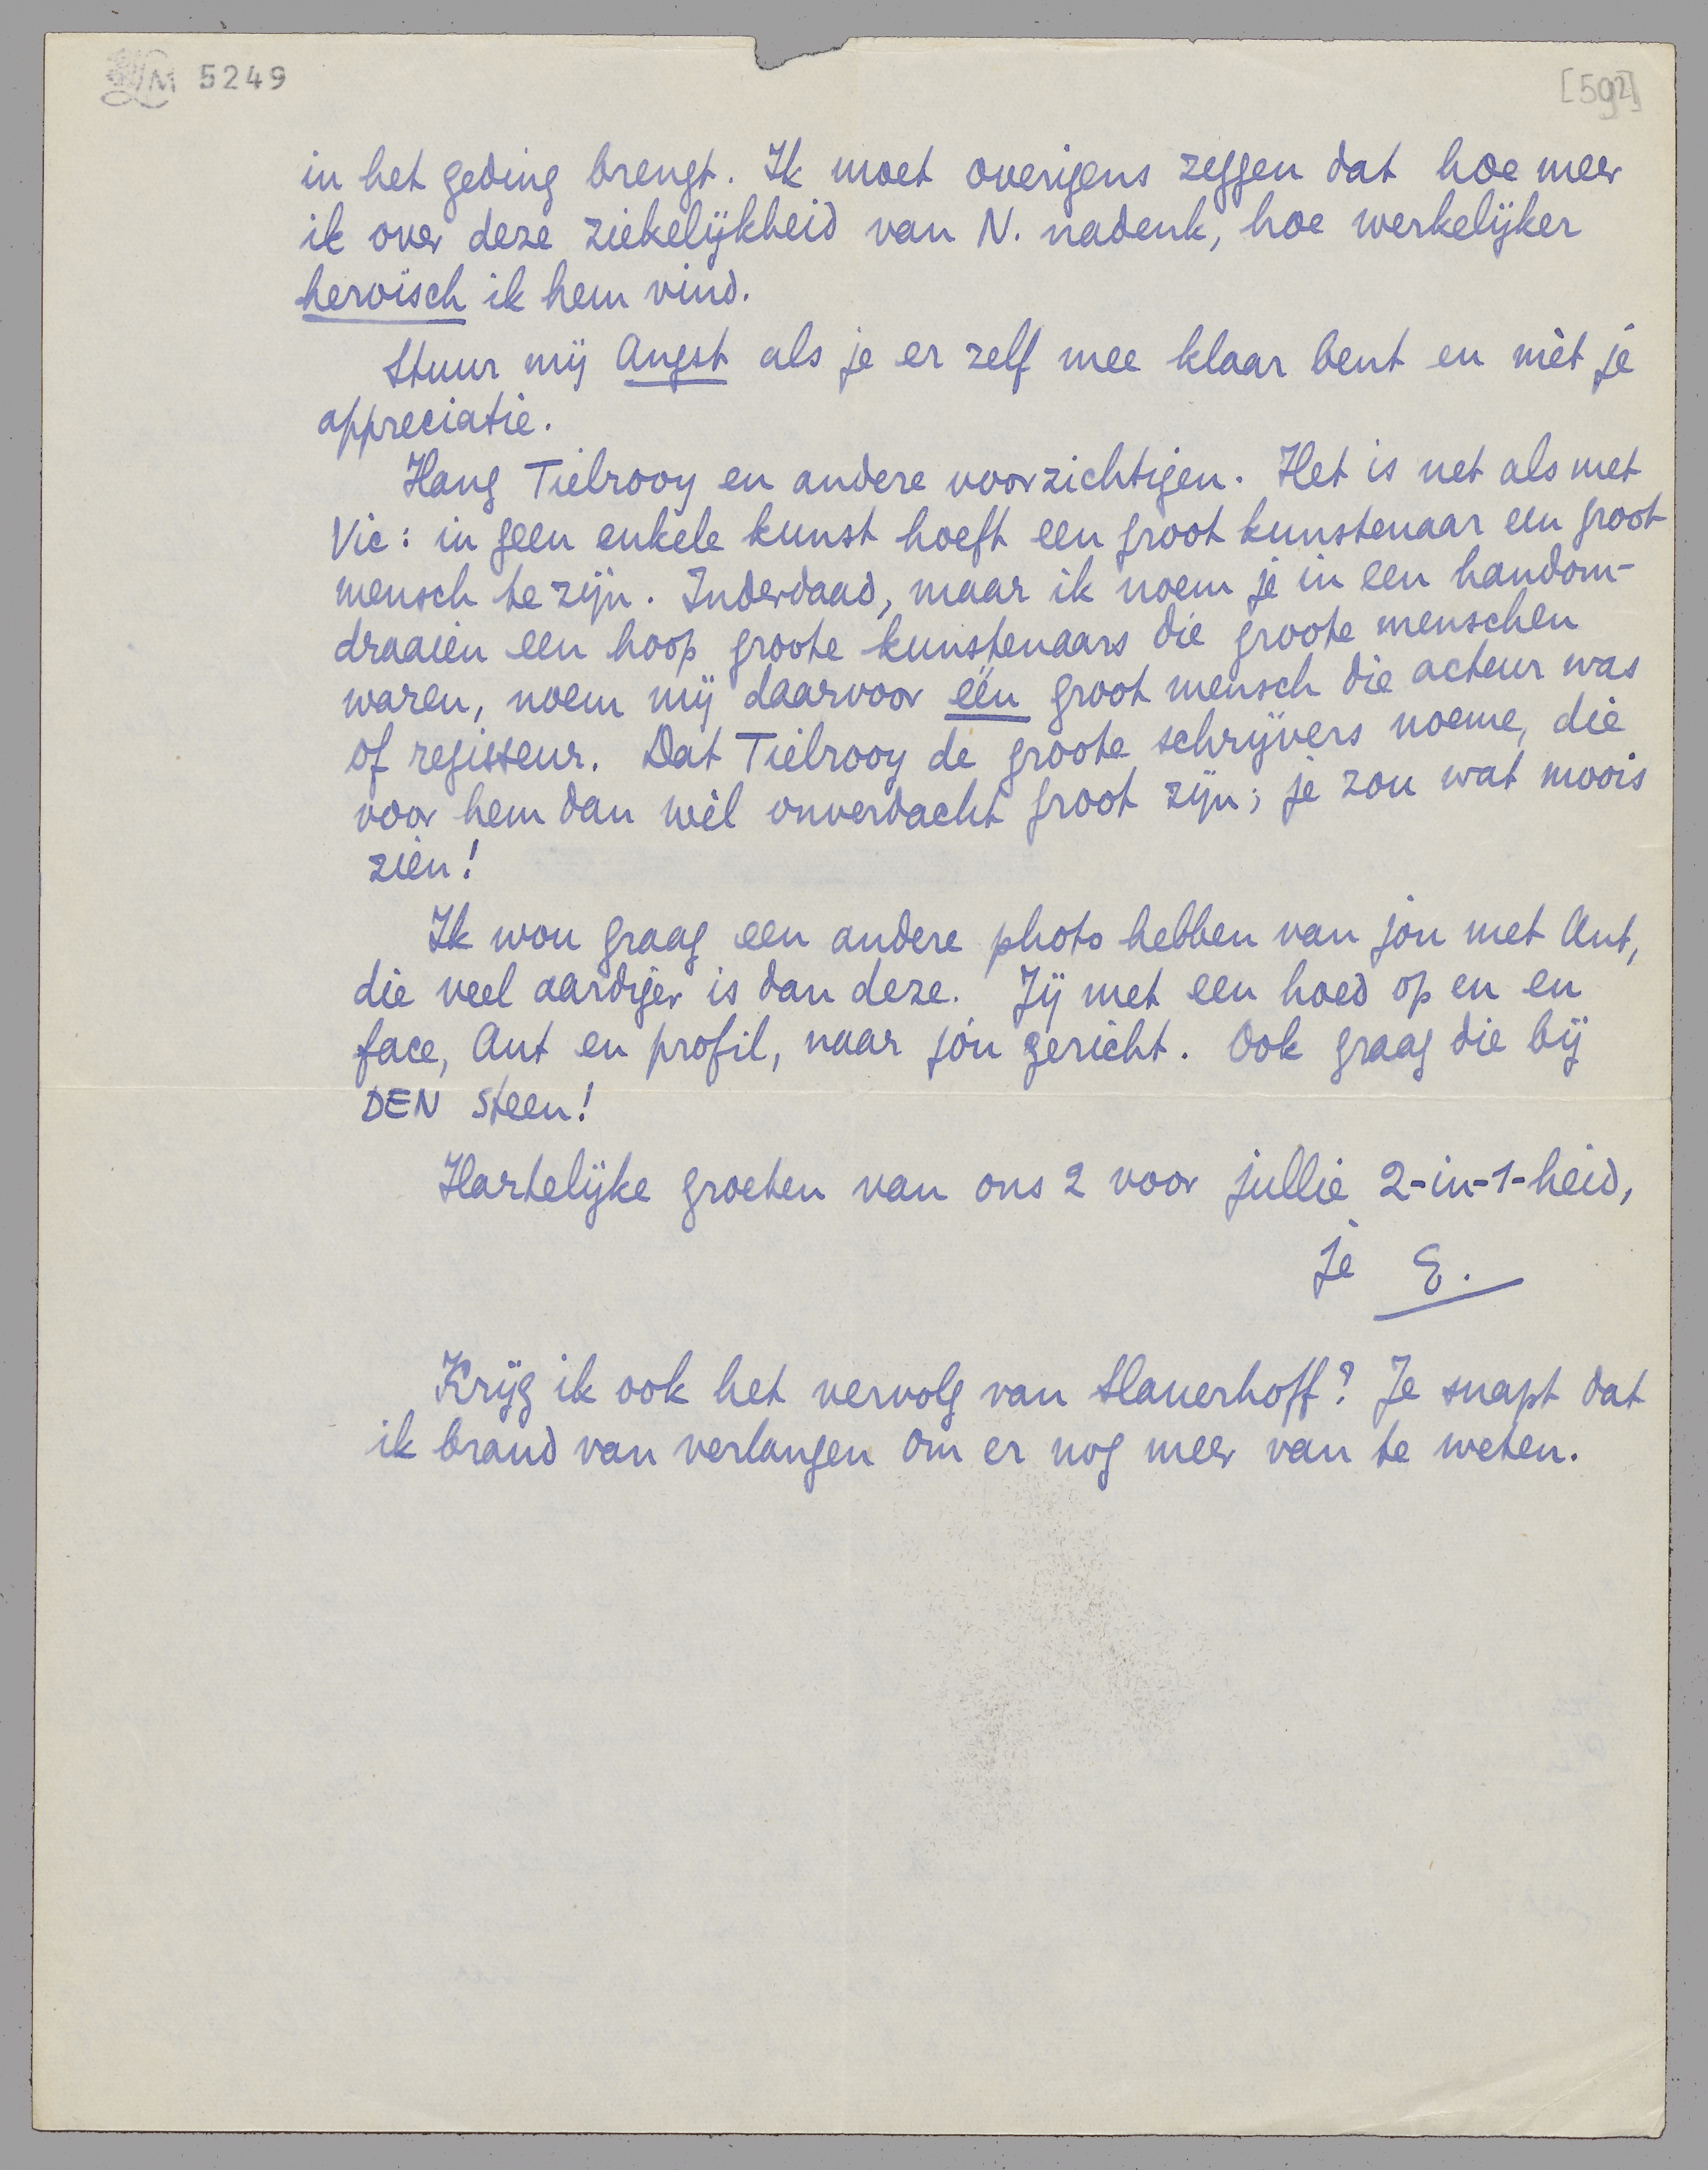 LM 5249
[592]
in het geding brengt. Ik moet overigens zeggen dat hoe meer
ik over deze ziekelijkheid van N. nadenk, hoe werkelijker
heroïsch ik hem vind.
Stuur mij Angst als je er zelf mee klaar bent en mèt je
appreciatie.
Hang Tielrooy en andere voorzichtigen. Het is net als met
Vic: in geen enkele kunst hoeft een groot kunstenaar een groot
mensch te zijn. Inderdaad, maar ik noem je in een handom-
draaien een hoop groote kunstenaars die groote menschen
waren, noem mij daarvoor één groot mensch die acteur was
of regisseur. Dat Tielrooy de groote schrijvers noeme, die
voor hem dan wèl onverdacht groot zijn; je zou wat moois
zien!
Ik wou graag een andere photo hebben van jou met Ant,
die veel aardiger is dan deze. Jij met een hoed op en en
face, Ant en profil, naar jóu gericht. Ook graag die bij
DEN steen!
Hartelijke groeten van ons 2 voor jullie 2-in-1-heid,
je E.
Krijg ik ook het vervolg van Slauerhoff? Je snapt dat
ik brand van verlangen om er nog meer van te weten.